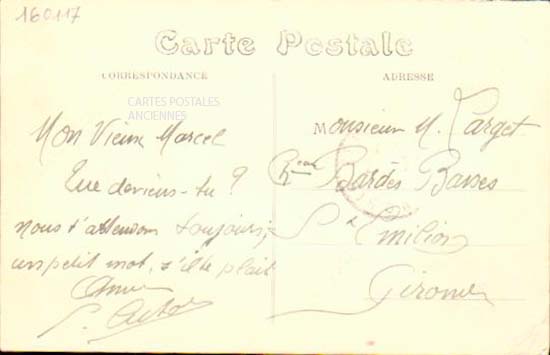 160117
Carte Postale
CORRESPONDANCE
ADRESSE
CARTES POSTALES
ANCIENNES
Mon Vieux Marcel
Que deviens-tu ?
nous t'attendons toujours,
un petit mot, s'il te plait
Monsieur M. Target
Bardes Basses
St Emilion
Gironde